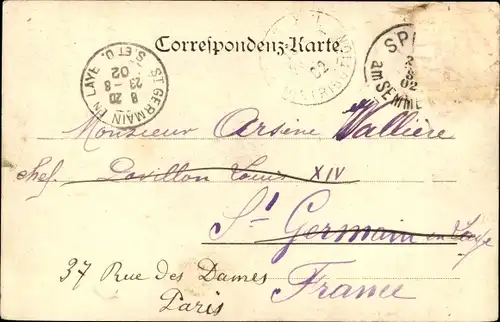 Correspondenz-Karte.
ST GERMAIN EN LAYE
S. ET O.
8 20
23 -8
02
02
SP
02
am SEMME
Monsieur Arsène Vallière
chef Pavillon Louis XIV
St Germain en Laye
37 Rue des Dames France
Paris